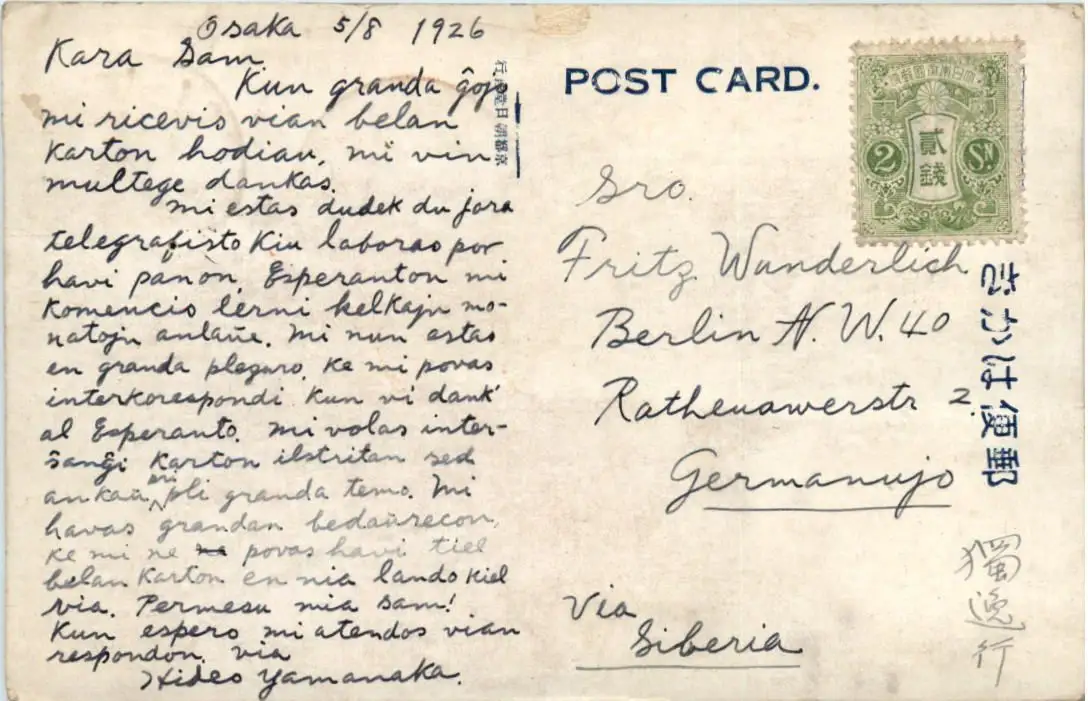 Osaka 5/8 1926
Kara Sam.
Kun granda ĝojo
mi ricevis vian belan
karton hodiau, mi vin
multege dankas.
Mi estas dudek du jara
telegrafisto kiu laboras por
havi panon, Esperanton mi
komencis lerni kelkajn mo-
natojn antaŭe. Mi nun estas
en granda plezuro, ke mi povas
interkorespondi kun vi dank'
al Esperanto. Mi volas inter-
ŝanĝi karton ilstritan sed
ankaŭ pri pli granda temo. Mi
havas grandan bedaŭrecon,
ke mi ne povas havi tiel
belan karton en nia lando kiel
via. Permesu mia sam!
Kun espero mi atendos vian
respondon. via
Hideo Yamanaka.
POST CARD.
貳錢
2
Sn
Sro.
Fritz Wunderlich
Berlin N. W. 40
Rathenowerstr 2.
Germanujo
Via
Siberia
郵便はかき
獨逸行